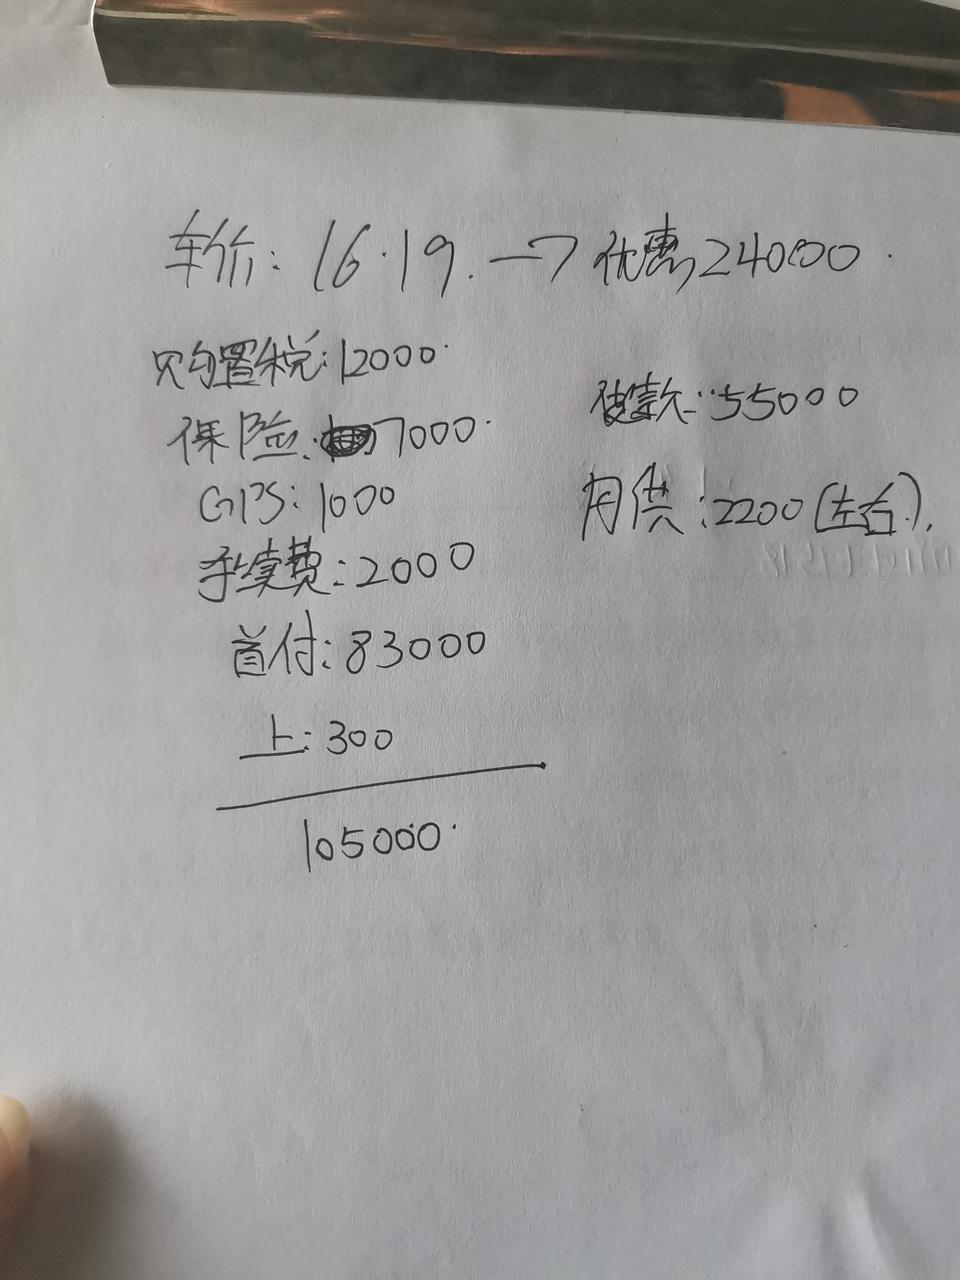 车价: 16.19. → 优惠24000.
购置税: 12000.
保险: 7000.
GPS: 1000
手续费: 2000
首付: 83000
上: 300
105000.
贷款: 55000
月供: 2200(左右).